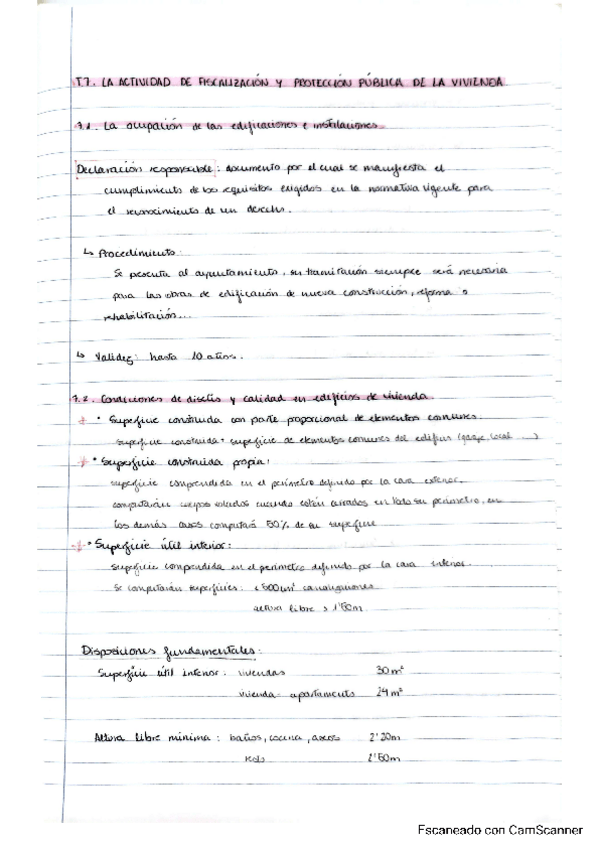 T.7. LA ACTIVIDAD DE FISCALIZACIÓN Y PROTECCIÓN PÚBLICA DE LA VIVIENDA
7.1. La ocupación de las edificaciones e instalaciones.
Declaración responsable: documento por el cual se manifiesta el
cumplimiento de los requisitos exigidos en la normativa vigente para
el reconocimiento de un derecho.
↳ Procedimiento:
Se presenta al ayuntamiento, su tramitación siempre será necesaria
para las obras de edificación de nueva construcción, reforma o
rehabilitación...
↳ Validez: hasta 10 años.
7.2. Condiciones de diseño y calidad en edificios de vivienda.
• Superficie construida con parte proporcional de elementos comunes:
superficie construida + superficie de elementos comunes del edificio (garaje, local ...)
• Superficie construida propia:
superficie comprendida en el perímetro definido por la cara exterior.
computarán cuerpos volados cuando estén cerrados en todo su perímetro, en
los demás casos computará 50% de su superficie
• Superficie útil interior:
superficie comprendida en el perímetro definido por la cara interior.
Se computarán superficies:
altura libre > 1'50m.
Disposiciones fundamentales:
Superficie útil interior: viviendas 30 m²
vivienda-apartamento 24 m²
Altura libre mínima: baños, cocina, aseos 2'20m
resto 2'50m
Escaneado con CamScanner